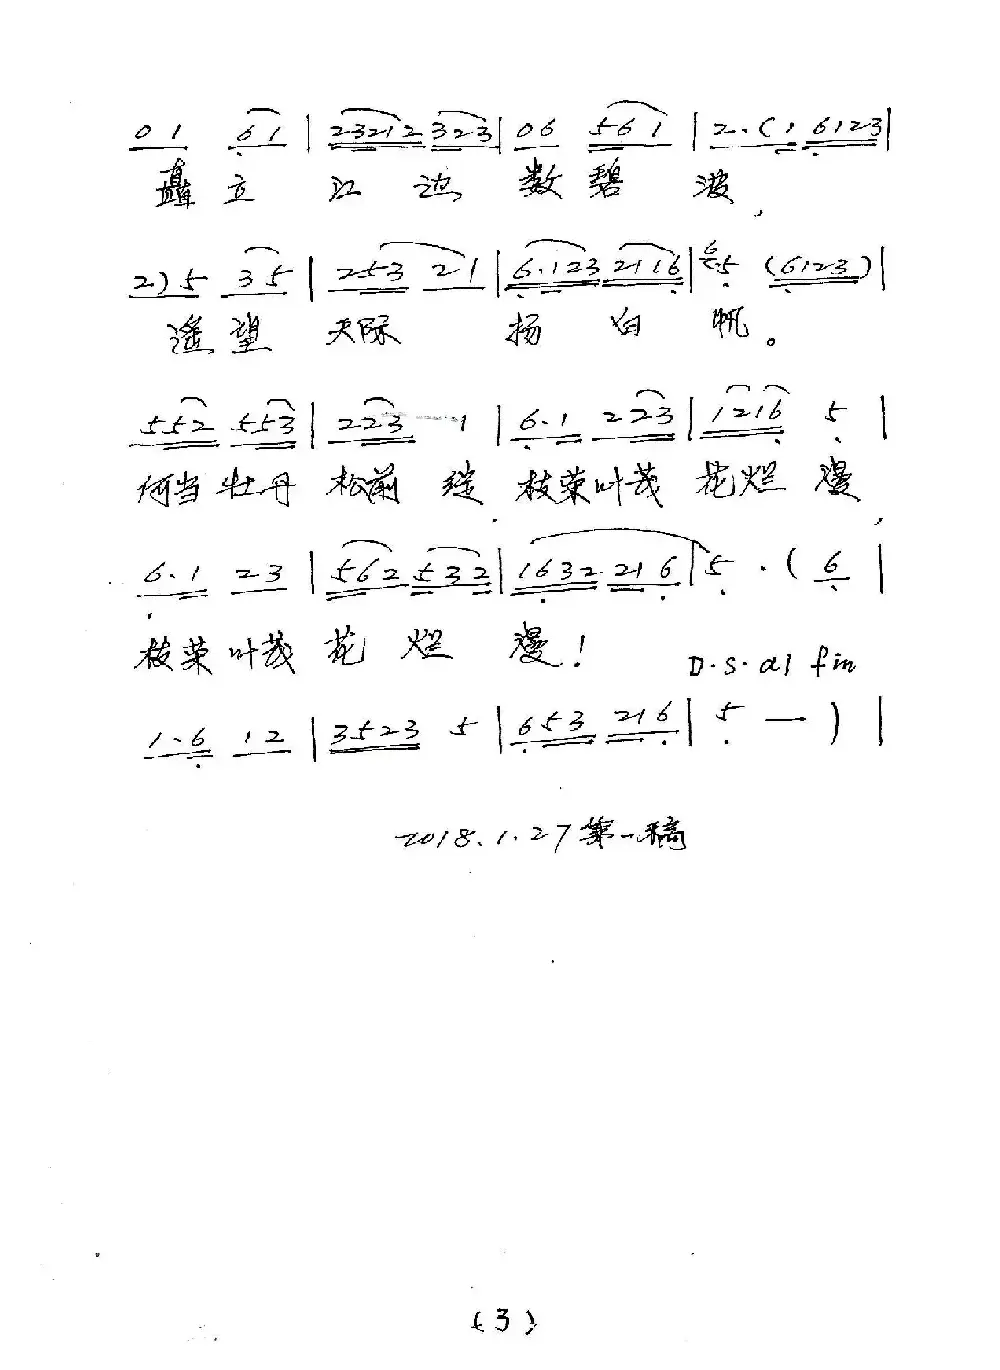 0 1 6 1 | 23212 323 | 06 561 | 2·(1 6123 |
矗立 江 边 数碧 波,
2) 5 35 | 253 21 | 6·123 2116 | 6 5 (6123) |
遥望 天际 扬 白 帆。
552 553 | 223 1 | 6·1 223 | 1216 5 |
何当牡丹 松前 绽, 枝荣叶茂 花烂 漫,
6·1 23 | 562 532 | 1632 216 | 5 ·( 6 |
枝荣叶茂 花 烂 漫!
D.S.al fin
1·6 12 | 3523 5 | 653 216 | 5 — ) |
2018.1.27第一稿
(3)